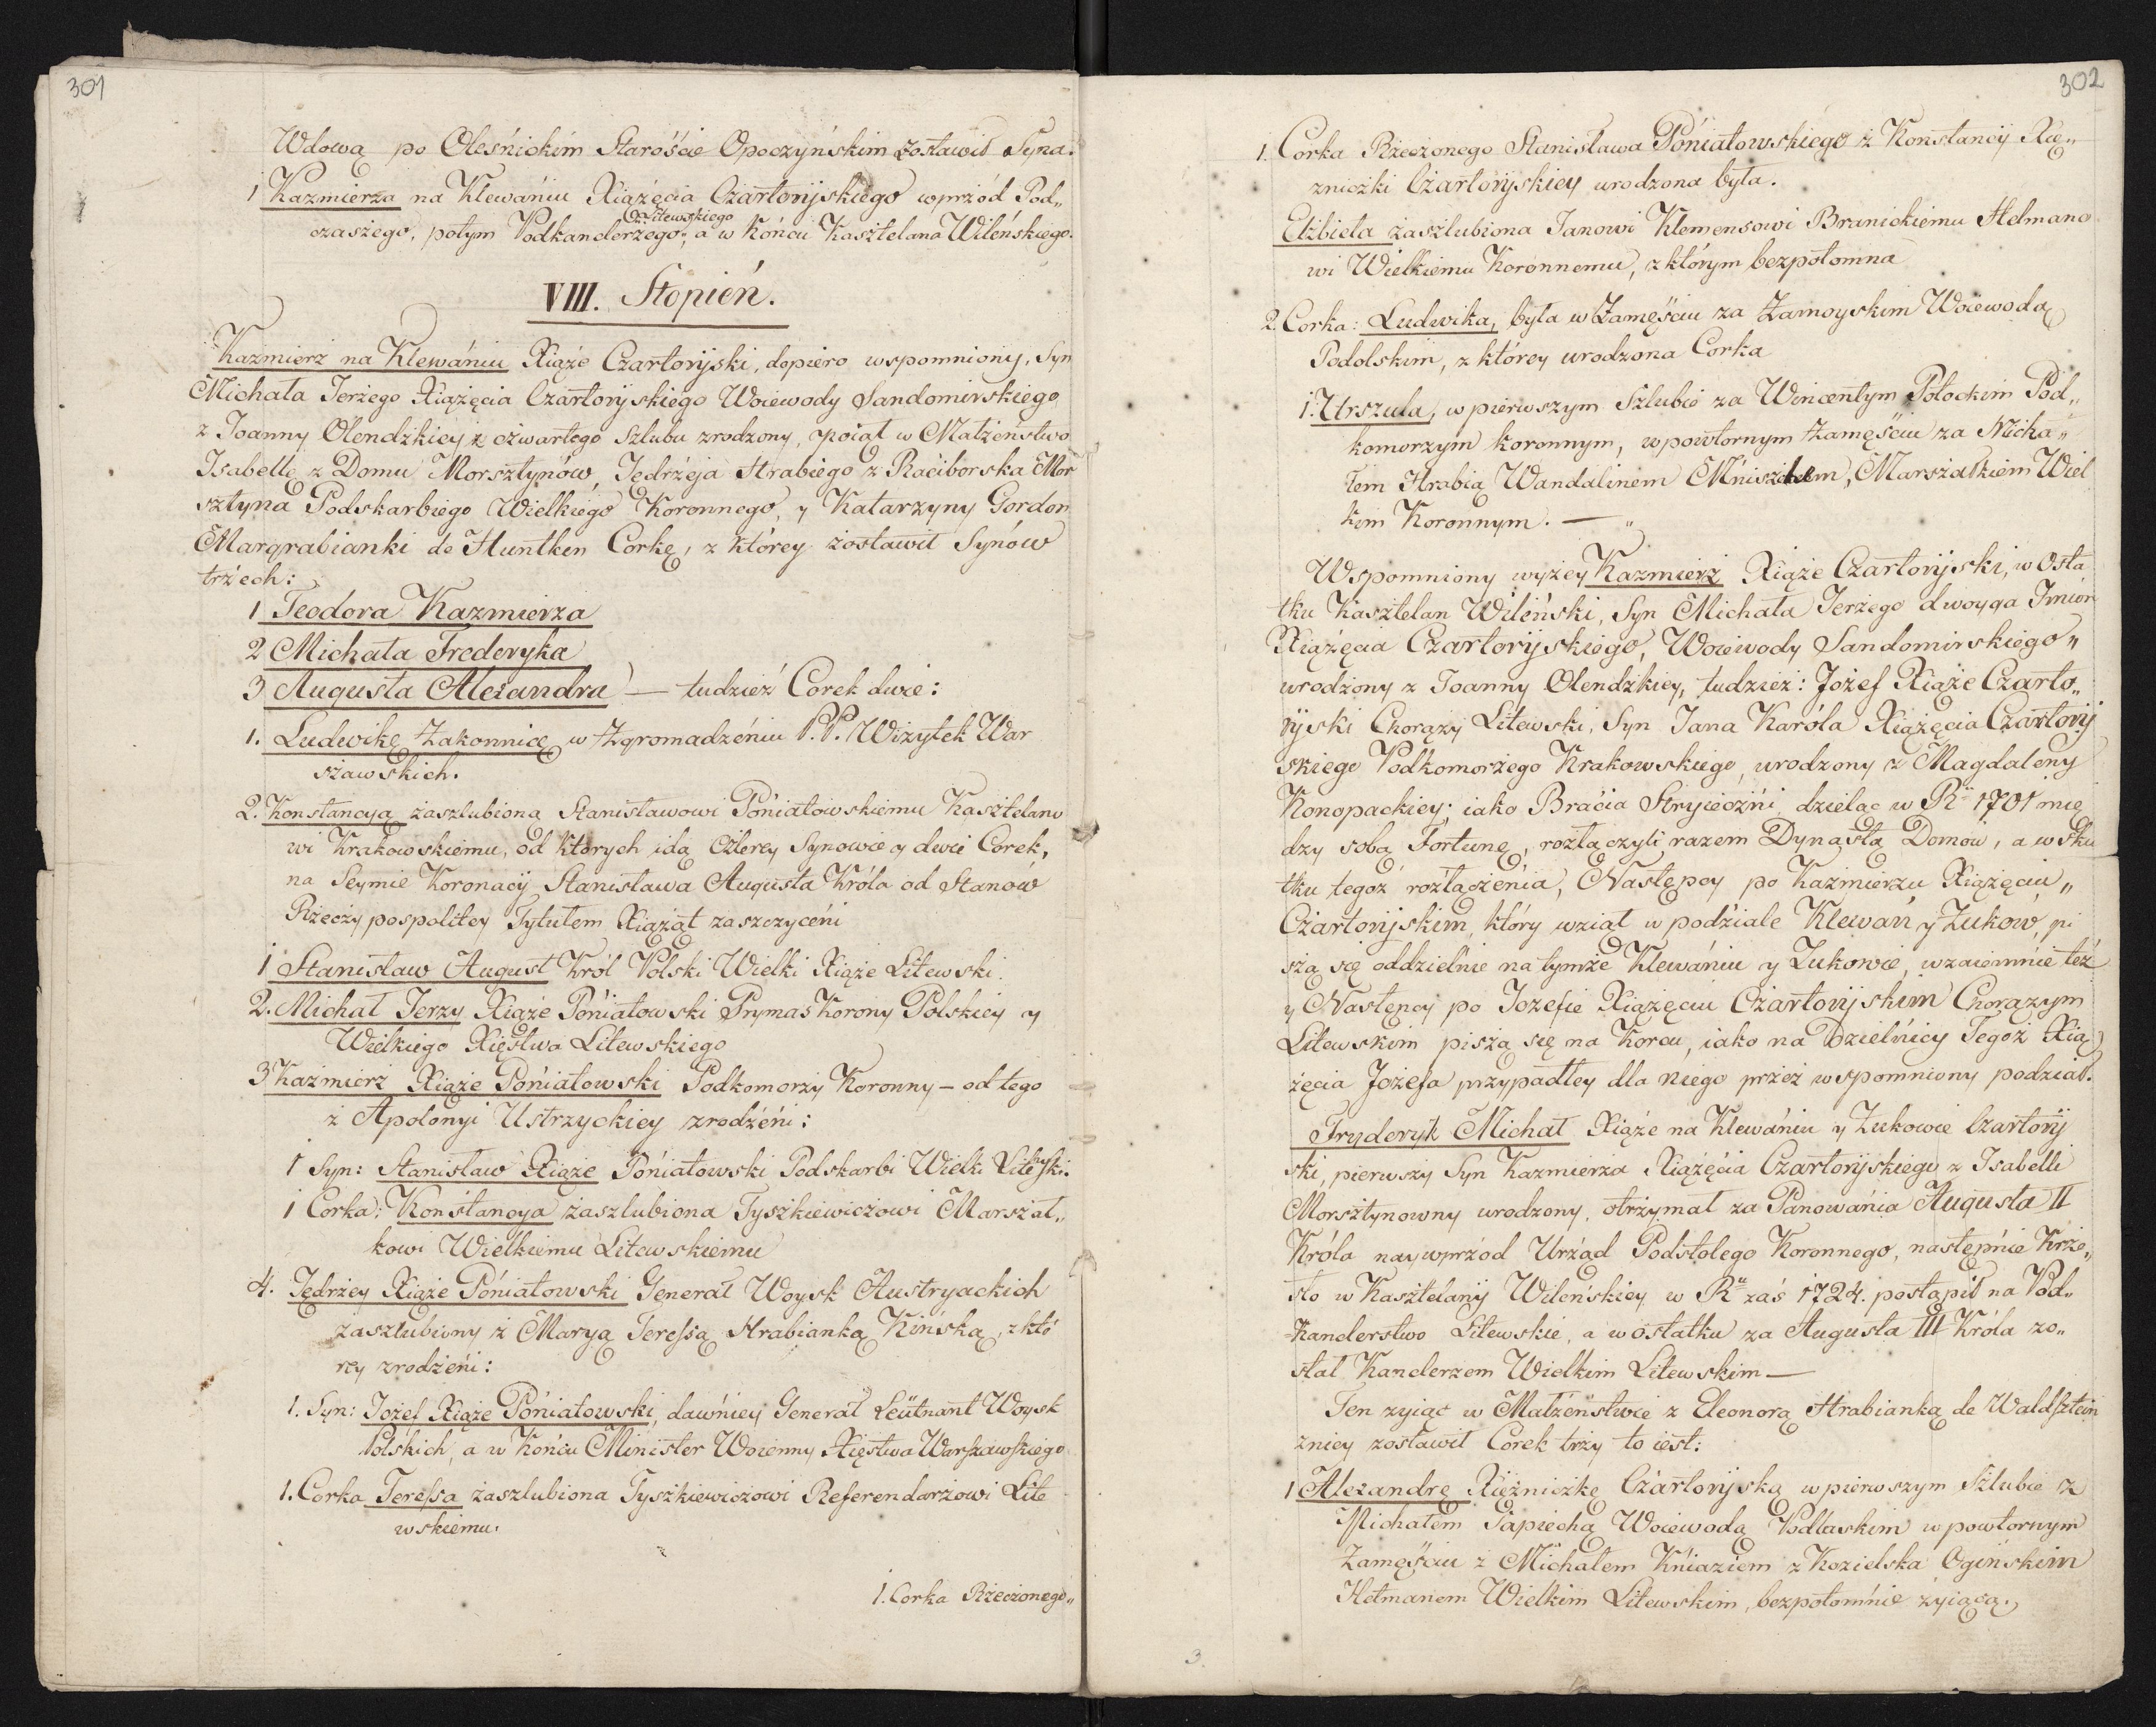 301
Wdową po Oleśnickim Starośćie Opoczyńskim zostawił Syna.
1 Kazmierza na Klewańiu Xiążęcia Czartoryskiego wprzód Pod„
Litewskiego
czaszego, potym Podkanclerzego, a w Końcu Kasztelana Wileńskiego.
VIII. Stopień.
Kazmierz na Klewániu Xiąże Czartoryski, dopiero wspomniony, Syn
Michała Jerzego Xiążęcia Czartoryskiego Woiewody Sandomirskiego
z Joanny Olendzkiey z czwartego Szlubu zrodzony, poiął w Małżeństwo
Isabellę z Domu Morsztynów, Jędrzeja Hrabiego z Raciborska Mor
sztyna Podskarbiego Wielkiego Koronnego, y Katarzyny Gordon
Margrabianki de Huntken Corkę, z którey zostawił Synów
trzech:
1 Teodora Kazmierza
2 Michała Frederyka
3 Augusta Alexandra — tudzież Corek dwie:
1. Ludwikę Zakonnicę w Zgromadzéniu P.P. Wizytek War
szawskich.
2. Konstancyą zaszlubioną Stanisławowi Poniatowskiemu Kasztelano
wi Krakowskiemu, od których idą Cżterey Synowie y dwie Corek,
na Seymie Koronacij Stanisława Augusta Króla od Stanów
Rzeczypospolitey Tytułem Xiążąt zaszczyceńi
1 Stanisław August Król Polski Wielki Xiąże Litewski.
2. Michał Jerzy Xiąże Póniatowski Prymas Korony Polskiey y
Wielkiego Xięstwa Litewskiego
3 Kazmierz Xiąże Poniatowski Podkomorzy Koronny — od tego
z Apolonyi Ustrzyckiey zrodźéni:
1 Syn: Stanisław Xiąże Póniatowski Podskarbi Wielki Litewski.
1 Corka: Konstancya zaszlubiona Tyszkiewiczowi Marszał„
kowi Wielkiemu Litewskiemu
4. Jędrzey Xiąże Póniatowski Generał Woysk Austryackich
zaszlubiony z Maryą Teressą Hrabianką Kińską, z któ
rey zrodzéni:
1. Syn: Jozef Xiąże Póniatowski, dawńiey Generał Leütnant Woysk
Polskich, a w Końcu Minister Woienny Xięstwa Warszawskiego
1. Corka Teressa zaszlubiona Tyszkiewiczowi Referendarzowi Lite
wskiemu.
1. Corka Rzeczonego„
302
1. Corka Rzeczonego Stanisława Póniatowskiego z Konstancij Xię„
zniczki Czartoryskiey urodzona była.
Elżbieta zaszlubiona Janowi Klemensowi Branickiemu Hetmano
wi Wielkiemu Koronnemu, z którym bezpotomna
2. Corka: Ludwika, była w Zamęściu za Zamoyskim Woiewodą
Podolskim, z którey urodzona Corka
1. Urszula, w pierwszym Szlubie za Wincentym Potockim Pod„
komorzym koronnym, w powtornym zamęściu za Micha„
łem Hrabią Wandalinem Mniszchem, Marszałkiem Wiel
kim Koronnym. — „
Wspomniony wyżey Kazmierz Xiąże Czartoryski, w Osta
tku Kasztelan Wileński, Syn Michała Jerzego dwoyga Imion
Xiążęcia Czartoryskiego, Woiewody Sandomirskiego„
urodzony z Joanny Olendzkiey, tudzież: Jozef Xiąże Czarto„
ryski Chorąży Litewski, Syn Jana Karóla Xiążęcia Czartory
skiego Podkomorzego Krakowskiego, urodzony z Magdaleny
Konopackiey; iako Bracia Stryieczni dzieląc w Rᵘ 1701 mię
dzy sobą Fortunę, rozłączyli razem Dynastą Domow, a w sku
tku tegoż rozłączénia, Następcy po Kazimierzu Xiążęciu„
Czartoryskim, który wziął w podziale Klewań y Zukow, pi
szą się oddzielnie na tymże Klewániu y Zukowie, wzaiemnie też
y Nastęncy po Jozefie Xiążęciu Czartoryskim Chorążym
Litewskim piszą się na Korcu, iako na Dzielńicy Tegoż Xią
żęcia Jozefa przypadłey dla niego przez wspomniony podział.
Fryderyk Michał Xiąże na Klewániu y Zukowie Czartory
ski, pierwszy Syn Kazmierza Xiążęcia Czartoryskiego z Isabelli
Morsztynowny urodzony, otrzymał za Panowańia Augusta II
Króla naywprzod Urząd Podstolego Koronnego, następńie Krze„
sło w Kasztelanij Wileńskiey w Rᵘ zaś 1724. postąpił na Pod„
kanclerstwo Litewskie, a w ostatku za Augusta III Króla zo„
stał Kanclerzem Wielkim Litewskim —
Ten zyiąc w Małżeństwie z Eleonorą Hrabianką de Waldsztein
zniey zostawił Corek trzy to iest:
1 Alexandrę Xiężniczkę Czartoryską w pierwszym Szlubie z
Michałem Sapiechą Woiewodą Podlaskim w powtornym
Zamęściu z Michałem Kniaziem z Kozielska Ogińskim
Hetmanem Wielkim Litewskim, bezpotomńie żyiącą.
3.